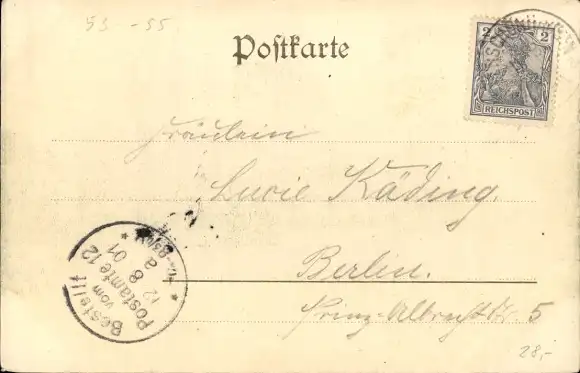 53 - 55
Postkarte
2 2
REICHSPOST
Fräulein
Lucie Käding.
Berlin.
Prinz-Albrecht Str. 5
Bestellt
vom
Postamte 12
12 8 01
28,-